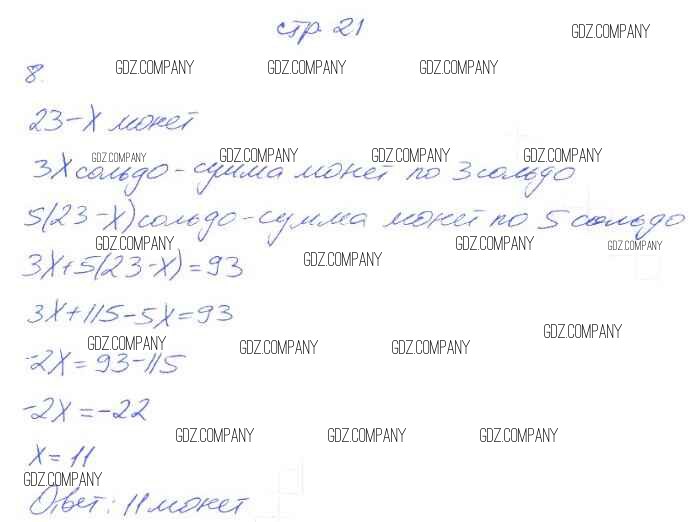 стр 21
GDZ.COMPANY
8.
GDZ.COMPANY GDZ.COMPANY GDZ.COMPANY
23-х монет
GDZ.COMPANY GDZ.COMPANY GDZ.COMPANY GDZ.COMPANY
3х сольдо - сумма монет по 3 сольдо
5(23-х) сольдо - сумма монет по 5 сольдо
GDZ.COMPANY GDZ.COMPANY GDZ.COMPANY
3х+5(23-х)=93
GDZ.COMPANY
3х+115-5х=93
GDZ.COMPANY
GDZ.COMPANY GDZ.COMPANY GDZ.COMPANY
-2х=93-115
-2х=-22
GDZ.COMPANY GDZ.COMPANY GDZ.COMPANY
х=11
GDZ.COMPANY
Ответ: 11 монет